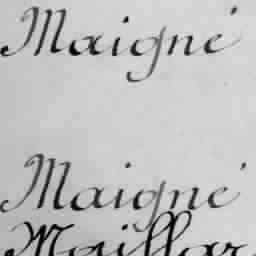 Maigné
Maigné
Maillar